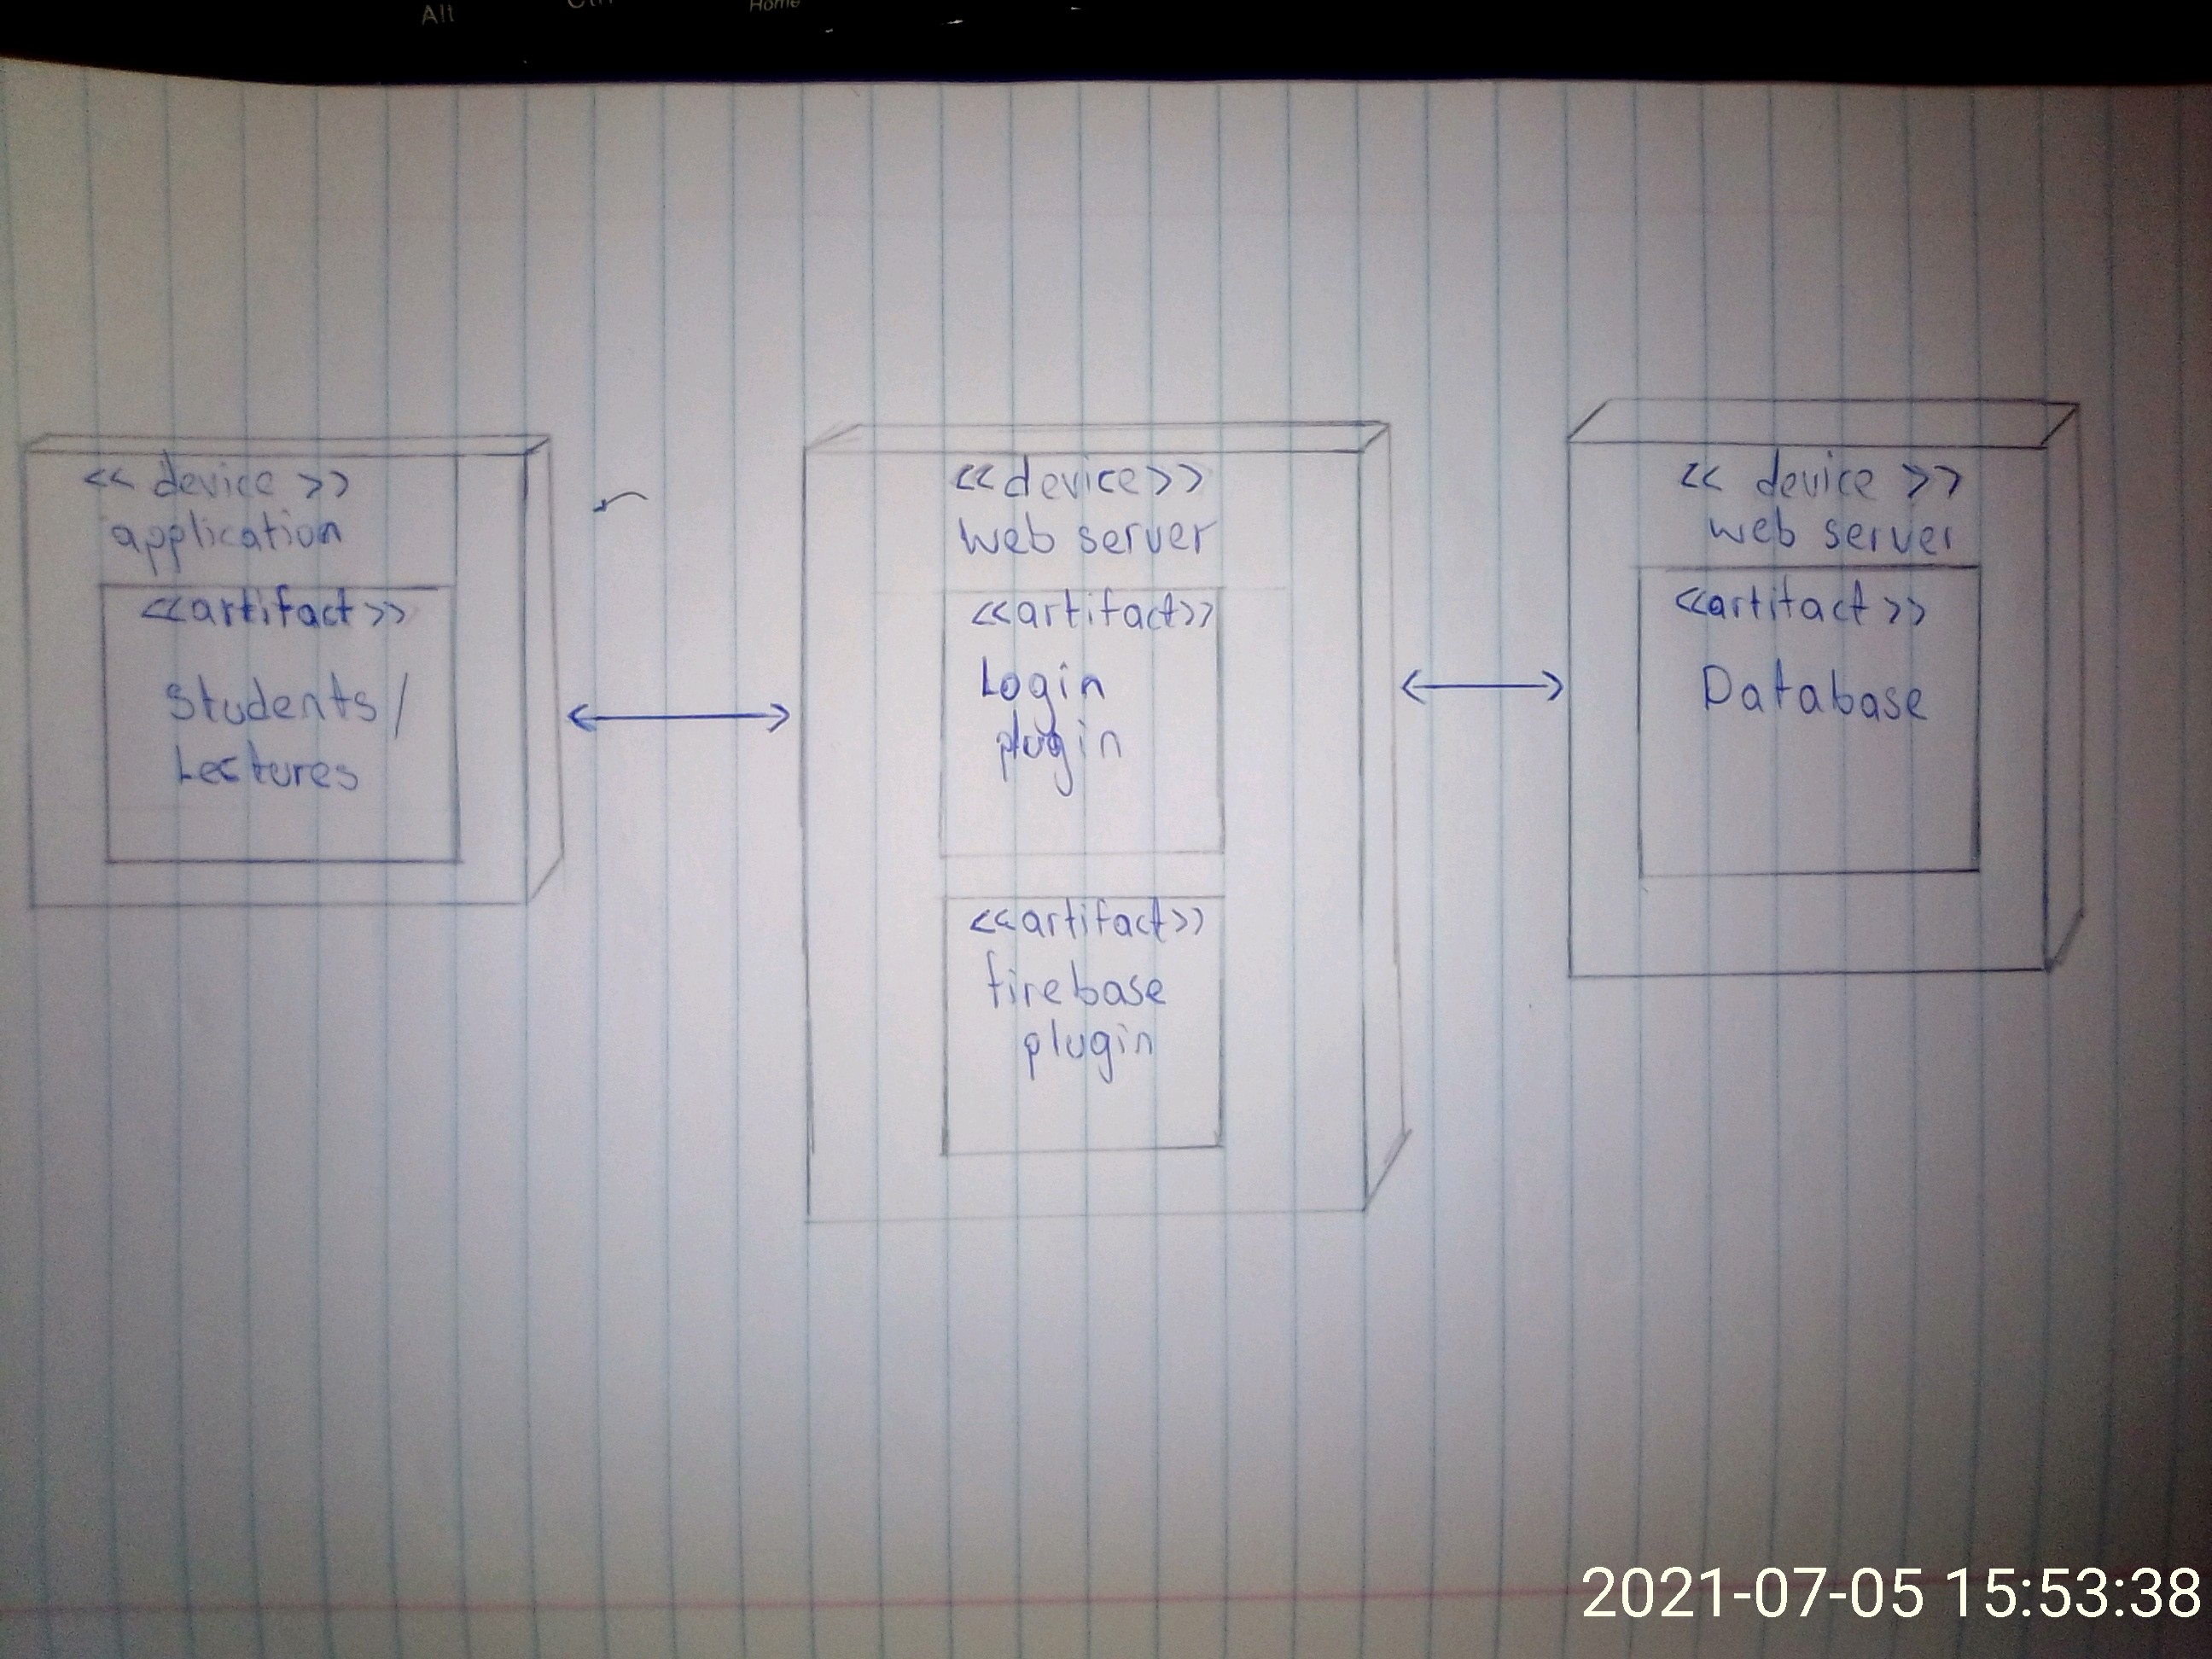 Alt
Home
<< device >>
application
<<artifact>>
Students/
Lectures
<<device>>
web server
<<artifact>>
Login
plugin
<<artifact>>
firebase
plugin
<< device >>
web server
<<artifact>>
Database
2021-07-05 15:53:38